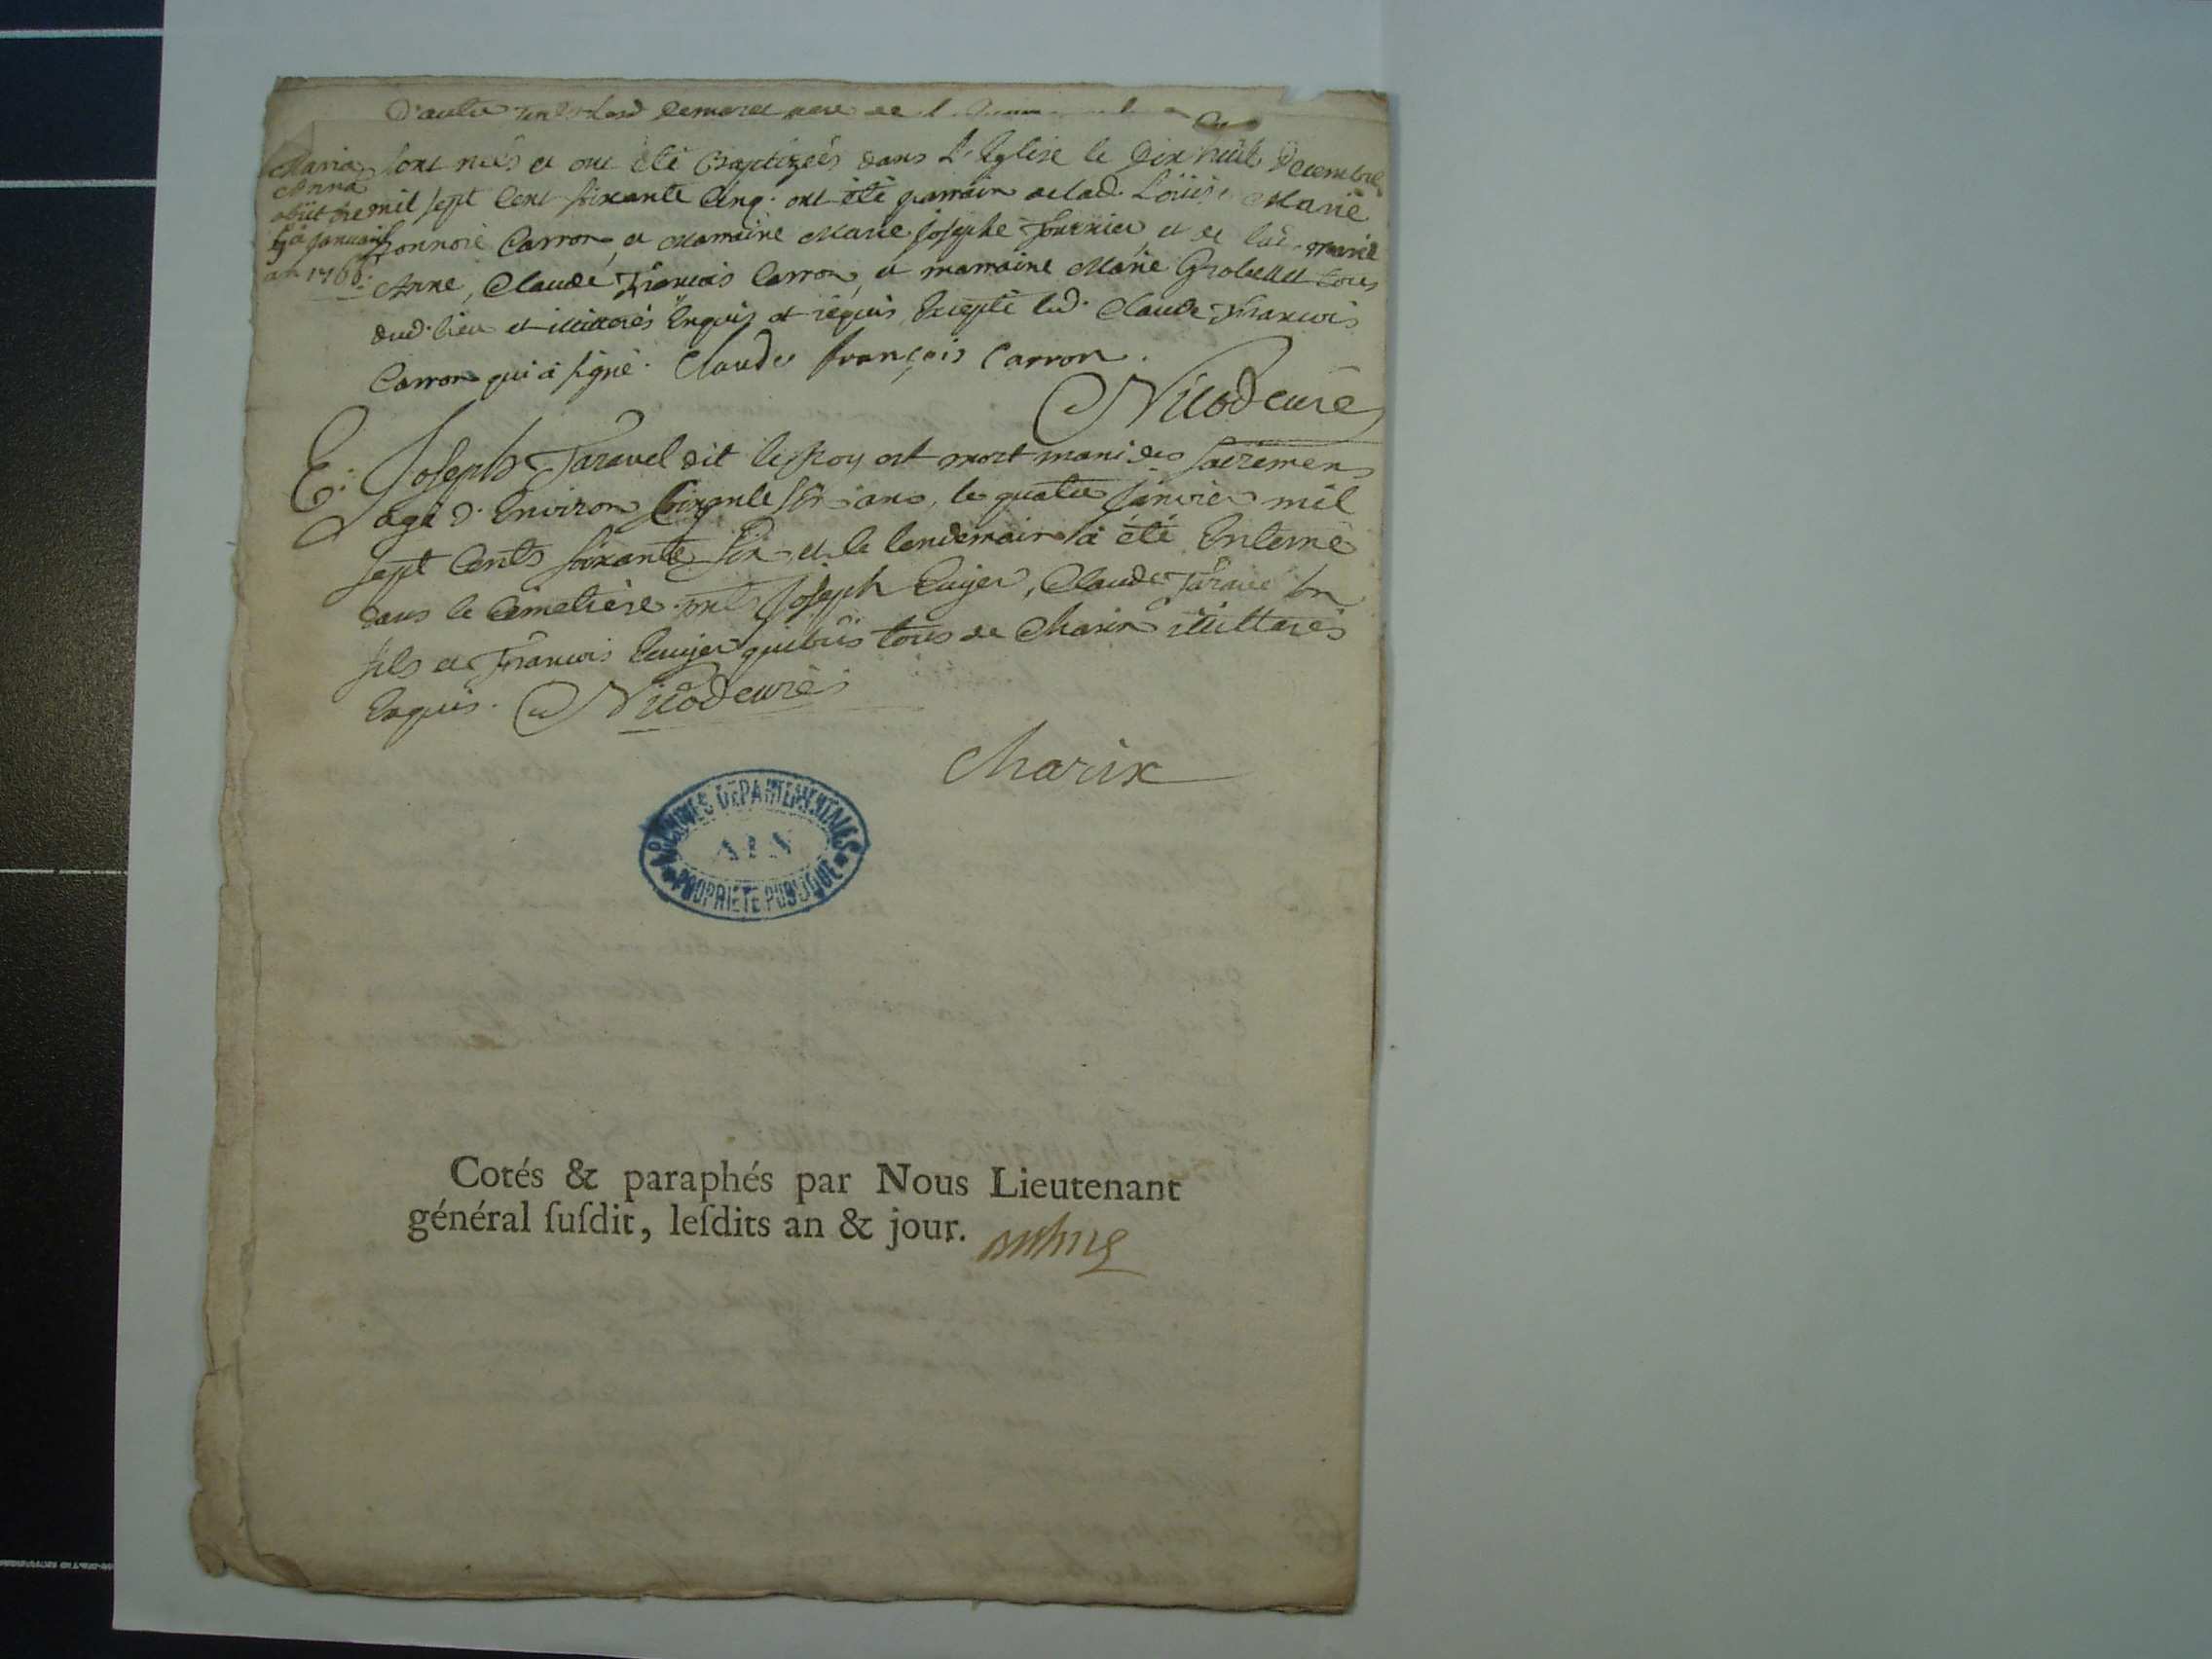 sont neés et ont été Baptizeés dans L'Eglise le Dix huit Decembre
mil sept Cent soixante Cinq. ont été parrain de lad. Loüise Marie
Honnoré Carron, et Marraine Marie josephe et de lad. marie
Anne, Claude François Carron, et marraine Marie Grobellet tous
dud. lieu et illitterés Enquis et requis Excepté led. Claude François
Carron qui à signé. Claude françois Carron.
Maria
Anna
obiit die
5a januarii
an 1766.
Nicod curé
E. Joseph Taravel dit le Roy est mort muni des sacremens
agé d'Environ soixante six ans, le quatre janvier mil
sept Cents soixante six et le lendemain à été Enterré
dans le Cimetière. pnts Joseph Cuyer, Claude Taravel son
fils et François tous de Charix illitterés
Enquis. Nicod curé
Charix
ARCHIVES DÉPARTEMENTALES
AIN
PROPRIÉTÉ PUBLIQUE
Cotés & paraphés par Nous Lieutenant
général ſuſdit, leſdits an & jour.